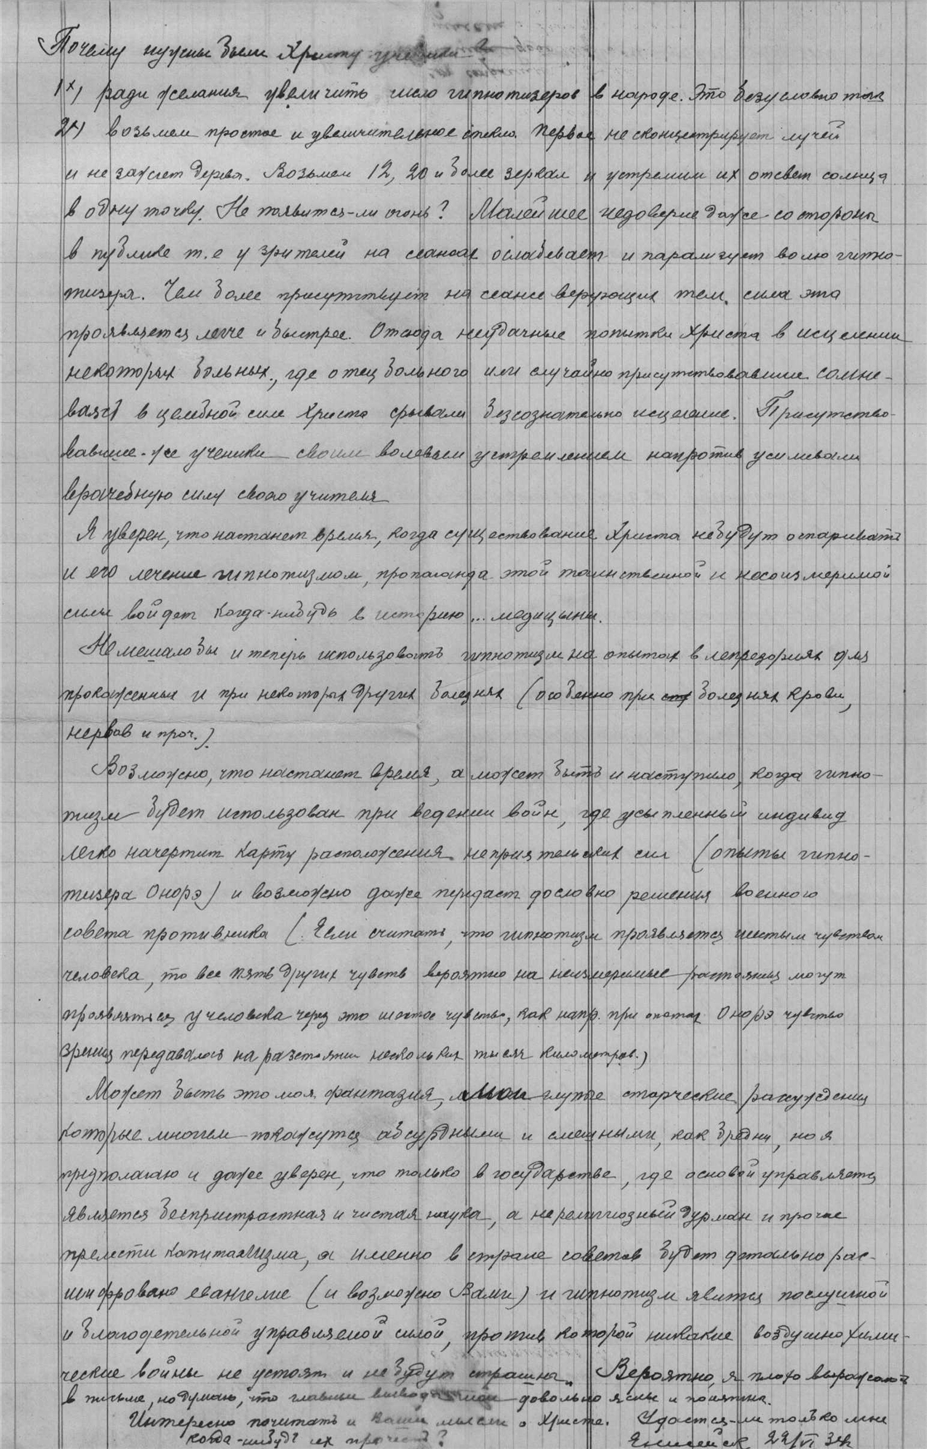 Почему нужны были Христу ученики?
1х) ради желания увеличить число гипнотизеров в народе. Это безусловно так
2х) возьмем простое и увеличительное стекло. Первое не сконцентрирует лучей
и не зажжет дерева. Возьмем 12, 20 и более зеркал и устремим их отсвет солнца
в одну точку. Не появится-ли огонь? Малейшее недоверие даже со стороны
в публике т.е у зрителей на сеансах ослабевает и парализует волю гипно-
тизера. Чем более присутствует на сеансе верующих тем сила эта
проявляется легче и быстрее. Отсюда неудачные попытки Христа в исцелении
некоторых больных, где отец больного или случайно присутствовавшие сомне-
ваясь в целебной силе Христа срывали безсознательно исцеление. Присутство-
вавшие-же ученики своим волевым устремлением напротив усиливали
врачебную силу своего учителя
Я уверен, что настанет время, когда существование Христа не будут оспаривать
и его лечение гипнотизмом, пропаганда этой таинственной и несоизмеримой
силы войдет когда-нибудь в историю... медицины.
Не мешало бы и теперь использовать гипнотизм на опытах в лепрозориях для
прокаженных и при некоторых других болезнях (особенно при болезнях крови,
нервов и проч.).
Возможно, что настанет время, а может быть и наступило, когда гипно-
тизм будет использован при ведении войн, где усыпленный индивид
легко начертит карту расположения неприятельских сил (опыты гипно-
тизера Онорэ) и возможно даже передаст дословно решения военного
совета противника (Если считать, что гипнотизм проявляется шестым чувством
человека, то все пять других чувств вероятно на неизмеримые расстояния могут
проявляться у человека через это шестое чувство, как напр. при опытах Онорэ чувство
зрения передавалось на разстоянии нескольких тысяч километров.)
Может быть это моя фантазия, мои глупые старческие рассуждения
которые многим покажутся абсурдными и смешными, как бредни, но я
предполагаю и даже уверен, что только в государстве, где основой управляется
является беспристрастная и чистая наука, а не религиозный дурман и прочие
прелести капитализма, а именно в стране советов будет детально рас-
шифровано евангелие (и возможно Вами) и гипнотизм явится послушной
и благодетельной управляемой силой, против которой никакие воздушно хими-
ческие войны не устоят и не будут страшны. Вероятно, я плохо выражаюсь
в письме, но думаю, что главные выводы довольно ясны и понятны.
Интересно почитать и Ваши мысли о Христе. Удастся-ли только мне
когда-нибудь их прочесть?
Енисейск 22/VI 34